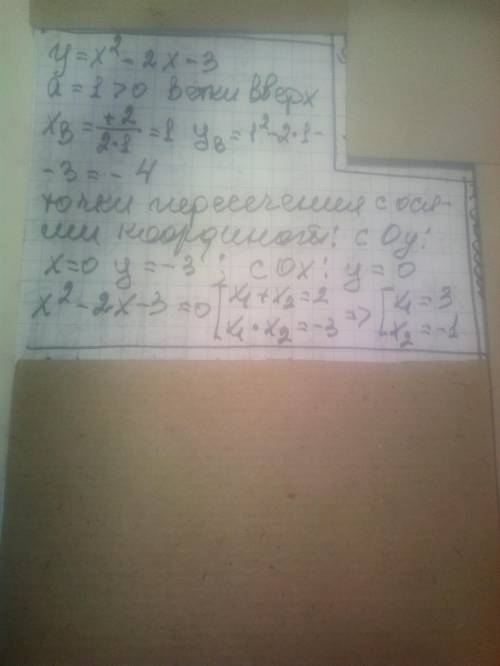 y = x² - 2x - 3
a = 1 > 0 ветки вверх
xв = +2/2·1 = 1 yв = 1² - 2·1 -
- 3 = - 4
точки пересечения с ося-
ми координат: с Oy:
x = 0 y = -3 ; с Ox: y = 0
x² - 2x - 3 = 0 [ x₁ + x₂ = 2 x₁ · x₂ = -3 => [ x₁ = 3 x₂ = -1